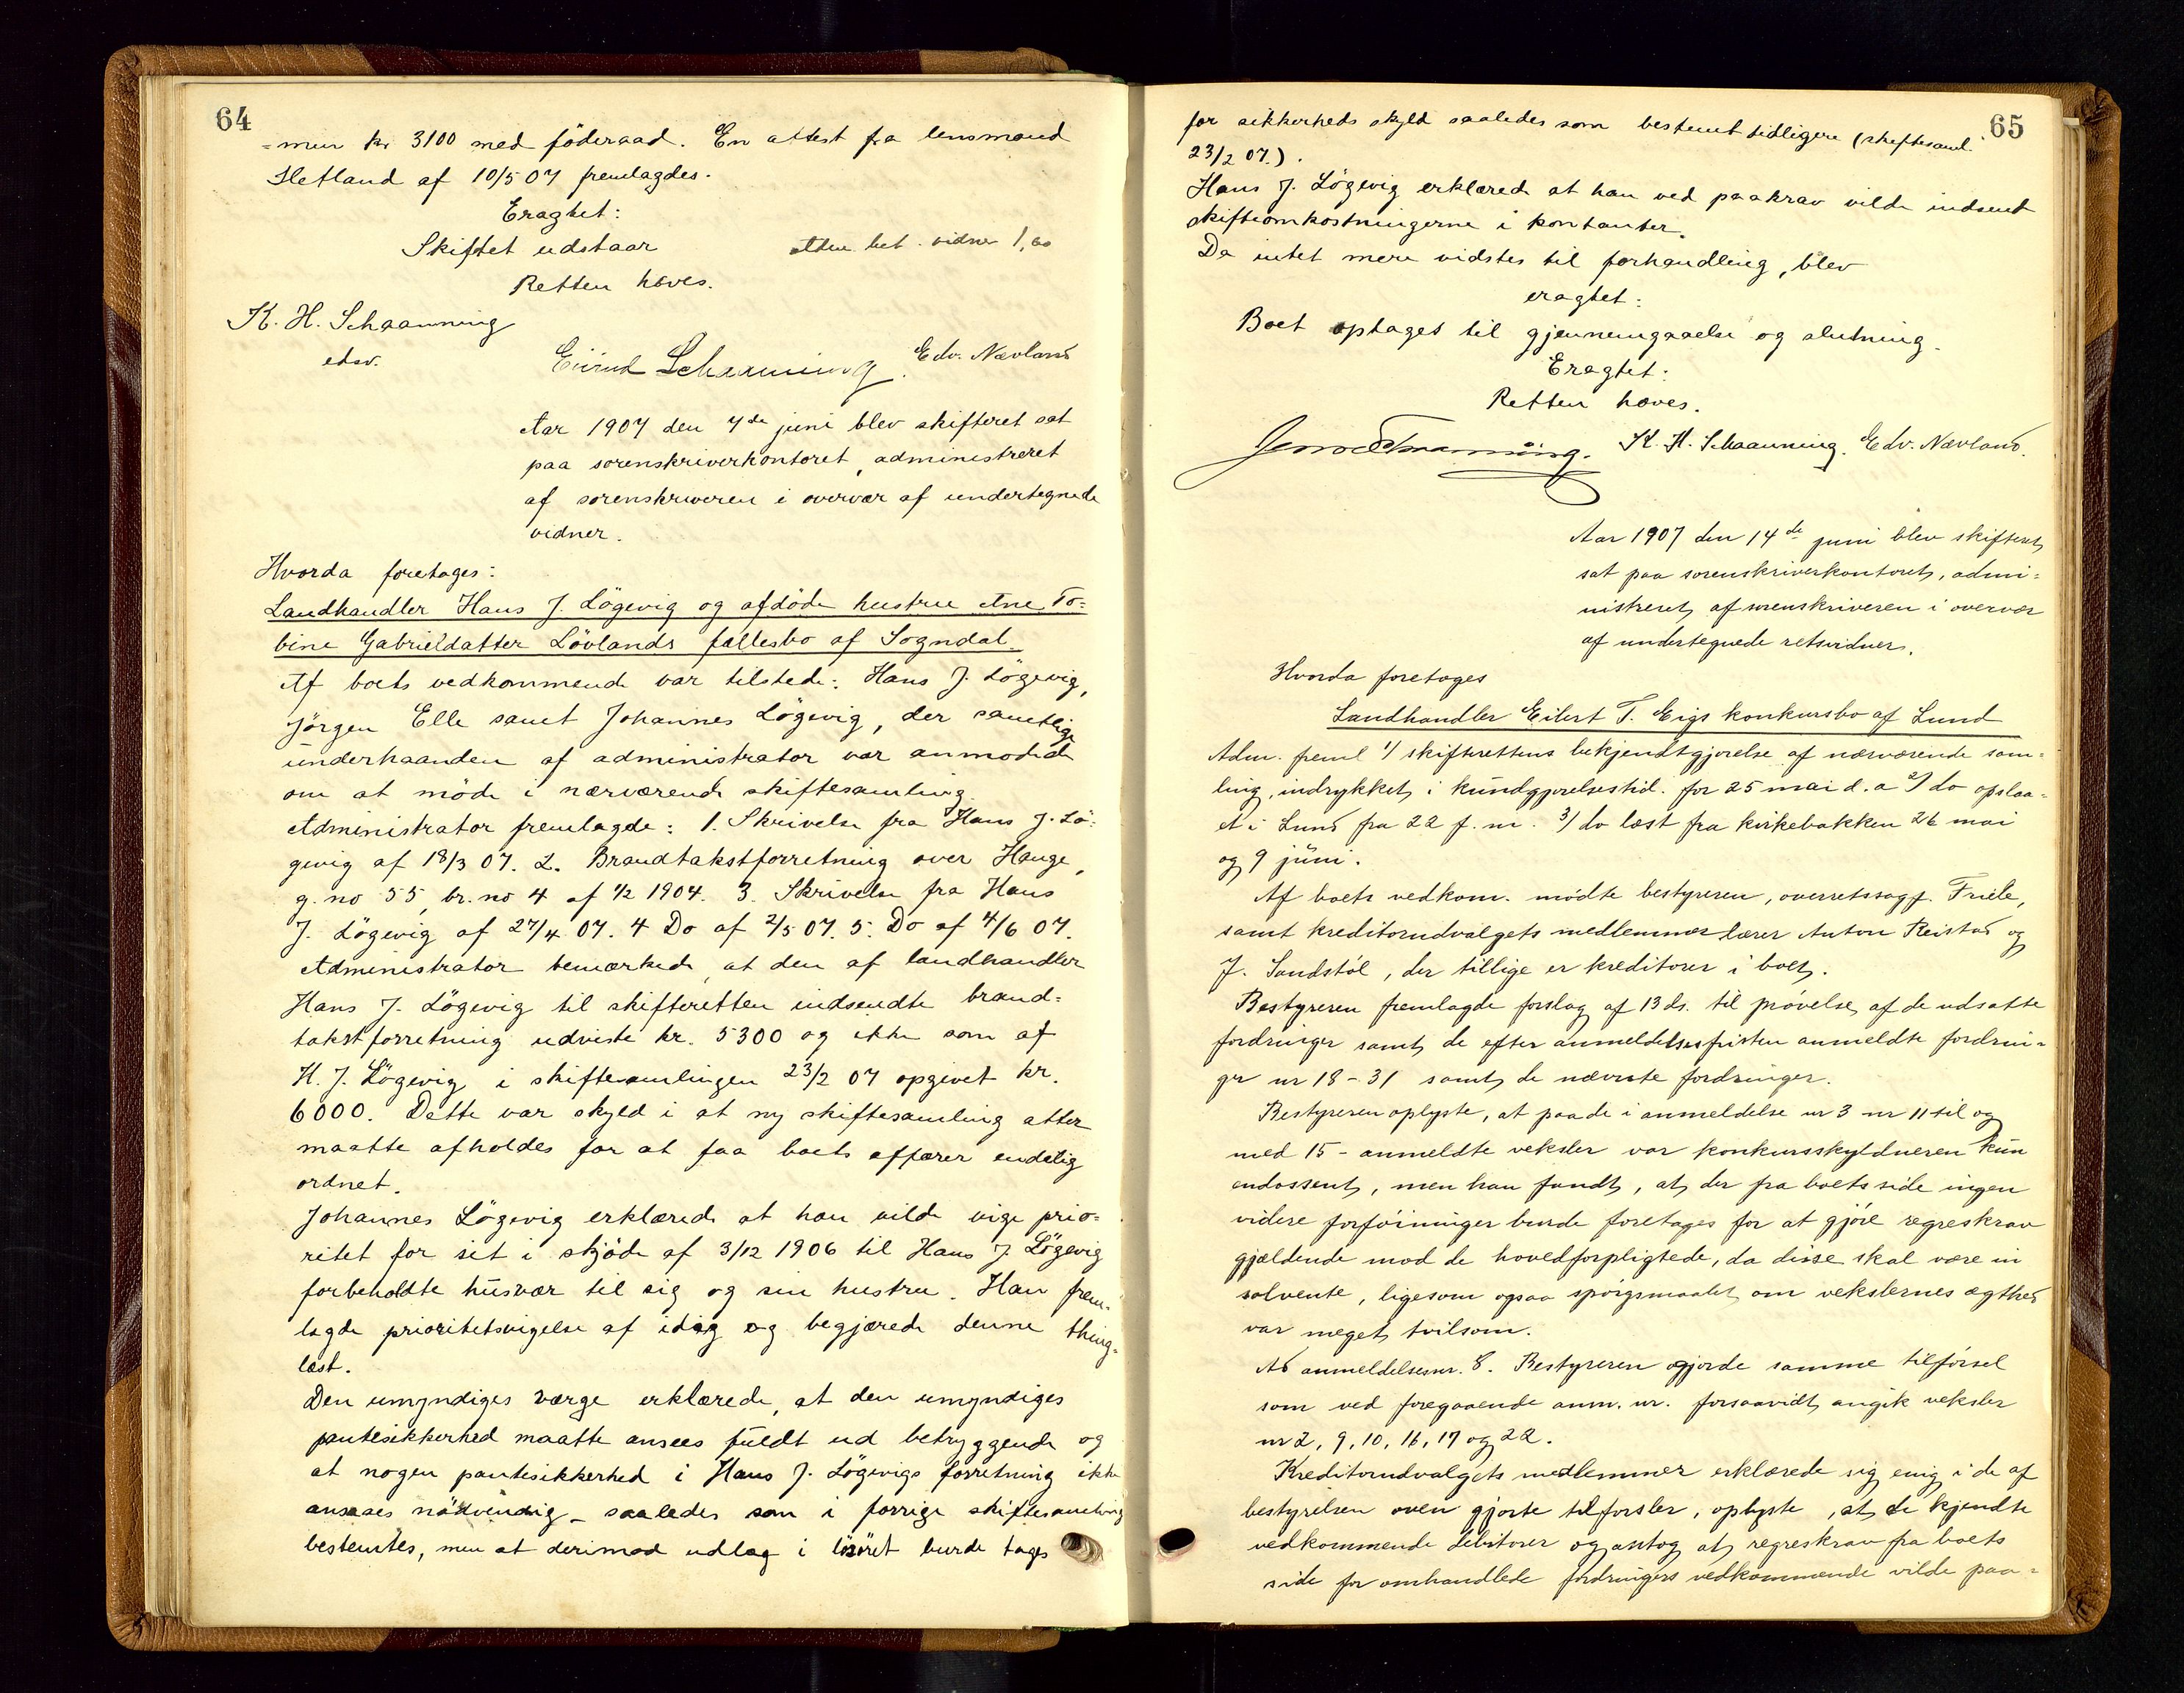 64
=men kr 3100 med föderaad. En attest fra lensmand
Hetland af 10/5 07 fremlagdes.
Eragtet:
Skiftet udstaar
bet. vidner 1,60
Retten hæves.
K. H. Schaanning
edsv.
Eivind Schaanning. Edv. Nævland
Aar 1907 den 7de juni blev skifteret sat
paa sorenskriverkontoret, administreret
af sorenskriveren i overvær af undertegnede
vidner.
Hvorda foretoges:
Landhandler Hans J. Lögevig og afdöde hustru Ane To=
bine Gabrieldatter Lövlands fællesbo af Sogndal.
Af boets vedkommende var tilstede: Hans J. Lögevig,
Jörgen Elle samt Johannes Lögevig, der samtlige
underhaanden af administrator var anmodede
om at möde i nærværende skiftesamling.
Administrator fremlagde: 1. Skrivelse fra Hans J. Lö=
gevig af 18/3 07. 2. Brandtakstforretning over Hauge,
g. no 55, br. no 4 af 1/2 1904. 3. Skrivelse fra Hans
J. Lögevig af 27/4 07. 4 Do af 2/5 07. 5. Do af 4/6 07.
Administrator bemærkede, at den af landhandler
Hans J. Lögevig til skifteretten indsendte brand=
takstforretning udviste kr. 5300 og ikke som af
H. J. Lögevig i skiftesamlingen 23/2 07 opgivet kr.
6000. Dette var skyld i at ny skiftesamling atter
maatte afholdes for at faa boets affærer endelig
ordnet.
Johannes Lögevig erklærede at han vilde vige prio=
ritet for sit i skjöde af 3/12 1906 til Hans J. Lögevig
forbeholdte husvær til sig og sin hustru. Han frem=
lagde prioritetsvigelse af idag og begjærede denne thing=
læst.
Den umyndiges værge erklærede, at den umyndiges
pantesikkerhed maatte ansees fuldt ud betryggende og
at nogen pantesikkerhed i Hans J. Lögevigs forretning ikke
ansaaes nödvendig - saaledes som i forrige skiftesamling
bestemtes, men at derimod udlæg i lösöret burde tages
65
for sikkerheds skyld saaledes som bestemt tidligere (skiftesaml.
23/2 07.).
Hans J. Lögevig erklærede at han ved paakrav vilde indsende
skifteomkostningerne i kontanter.
Da intet mere vidstes til forhandling, blev
eragtet:
Boet optages til gjennemgaaelse og slutning.
Eragtet:
Retten hæves.
Schaanning. K. H. Schaanning. Edv. Nævland.
Aar 1907 den 14de juni blev skifteret
sat paa sorenskriverkontoret, admi=
nistreret af sorenskriveren i overvær
af undertegnede retsvidner.
Hvorda foretoges
Landhandler Eilert T. Eigs konkursbo af Lund
Adm. freml 1/ skifterettens bekjendtgjørelse af nærværende sam=
ling, indrykket i kundgjørelsestid. for 25 mai d. a 2/ do opslaa=
et i Lund fra 22 f. m. 3/ do læst fra kirkebakken 26 mai
og 9 juni.
Af boets vedkom. mödte bestyreren, overretssagf. Friele,
samt kreditorudvalgets medlemmer lærer Anton Reistad og
J. Sandstöl, der tillige er kreditorer i boet.
Bestyreren fremlagde forslag af 13 ds. til prövelse af de udsatte
fordringer samt de efter anmeldelsesfristen anmeldte fordrin=
ger nr 18-31 samt de nævnte fordringer.
Bestyreren oplyste, at paa de i anmeldelse nr 3 nr 11 til og
med 15 - anmeldte veksler var konkursskyldneren kun
endossent, men han fandt, at der fra boets side ingen
videre forföininger burde foretages for at gjöre regreskrav
gjældende mod de hovedforpligtede, da disse skal være in
solvente, ligesom ogsaa spörgsmaalet om vekslernes ægthed
var meget tvilsom.
Ad anmeldelsesnr. 8. Bestyreren gjorde samme tilförsel
som ved foregaaende anm. nr. forsaavidt angik veksler
nr 2, 9, 10, 16, 17 og 22.
Kreditorudvalgets medlemmer erklærede sig enig i de af
bestyrelsen oven gjorte tilforsler, oplyste, at de kjendte
vedkommende debitorer og antog at regreskrav fra boets
side for omhandlede fordringers vedkommende vilde paa=